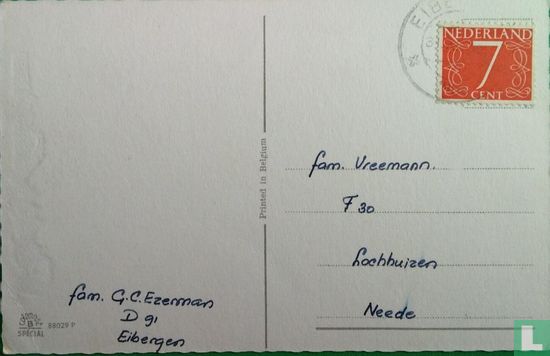 EIBE
NEDERLAND
7
CENT
fam. Vreemann.
F 30
Lochhuizen
Neede
Printed in Belgium
fam. G.C. Ezerman
D 91
Eibergen
B
SPECIAL 88029 P
catawiki